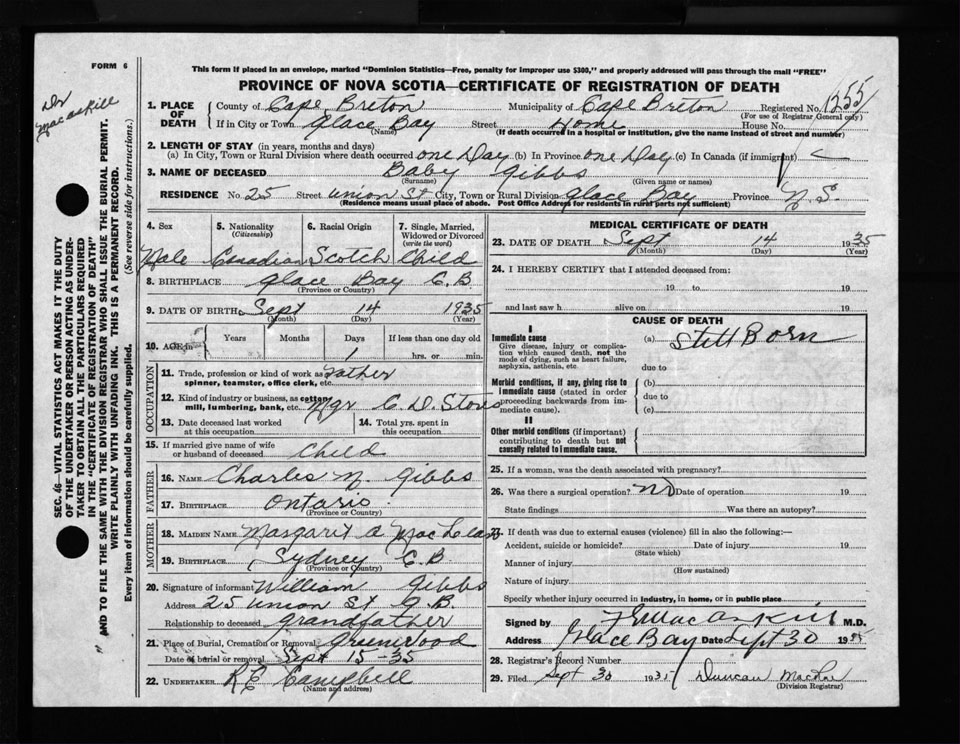 FORM 6
This form if placed in an envelope, marked "Dominion Statistics—Free, penalty for improper use $300," and properly addressed will pass through the mail "FREE"
PROVINCE OF NOVA SCOTIA—CERTIFICATE OF REGISTRATION OF DEATH
Dr
MacaskIll
SEC. 46—VITAL STATISTICS ACT MAKES IT THE DUTY
OF THE UNDERTAKER OR PERSON ACTING AS UNDER-
TAKER TO OBTAIN ALL THE PARTICULARS REQUIRED
IN THE "CERTIFICATE OF REGISTRATION OF DEATH"
AND TO FILE THE SAME WITH THE DIVISION REGISTRAR WHO SHALL ISSUE THE BURIAL PERMIT.
WRITE PLAINLY WITH UNFADING INK. THIS IS A PERMANENT RECORD.
Every item of information should be carefully supplied. (See reverse side for instructions.)
1. PLACE OF DEATH County of Cape Breton Municipality of Cape Breton Registered No. 1255
(For use of Registrar General only)
If in City or Town Glace Bay Street Home House No.
(Name) (If death occurred in a hospital or institution, give the name instead of street and number)
2. LENGTH OF STAY (in years, months and days)
(a) In City, Town or Rural Division where death occurred one Day (b) In Province one Day (c) In Canada (if immigrant)
3. NAME OF DECEASED Baby Gibbs
(Surname) (Given name or names)
RESIDENCE No. 25 Street Union St City, Town or Rural Division Glace Bay Province N.S.
(Residence means usual place of abode. Post Office Address for residents in rural parts not sufficient)
4. Sex 5. Nationality (Citizenship) 6. Racial Origin 7. Single, Married, Widowed or Divorced (write the word)
Male Canadian Scotch Child
8. BIRTHPLACE Glace Bay C.B.
(Province or Country)
9. DATE OF BIRTH Sept 14 1935
(Month) (Day) (Year)
10. AGE in Years Months Days If less than one day old
1 hrs. or min.
OCCUPATION
11. Trade, profession or kind of work as spinner, teamster, office clerk, etc. Father
12. Kind of industry or business, as cotton mill, lumbering, bank, etc. Mgr C.D. Stores
13. Date deceased last worked at this occupation 14. Total yrs. spent in this occupation
15. If married give name of wife or husband of deceased Child
FATHER
16. NAME Charles N. Gibbs
17. BIRTHPLACE Ontario
(Province or Country)
MOTHER
18. MAIDEN NAME Margaret A MacLean
19. BIRTHPLACE Sydney C.B.
(Province or Country)
20. Signature of informant William Gibbs
Address 25 Union St G.B.
Relationship to deceased grandfather
21. Place of Burial, Cremation or Removal Greenwood
Date of burial or removal Sept 15-35
22. UNDERTAKER RE Campbell
(Name and address)
MEDICAL CERTIFICATE OF DEATH
23. DATE OF DEATH Sept 14 1935
(Month) (Day) (Year)
24. I HEREBY CERTIFY that I attended deceased from:
19 to 19
and last saw h alive on 19
CAUSE OF DEATH
I
Immediate cause (a) Still Born
Give disease, injury or complica-
tion which caused death, not the
mode of dying, such as heart failure,
asphyxia, asthenia, etc due to
Morbid conditions, if any, giving rise to (b)
immediate cause (stated in order due to
proceeding backwards from im-
mediate cause). (c)
II
Other morbid conditions (if important)
contributing to death but not
causally related to immediate cause.
25. If a woman, was the death associated with pregnancy?
26. Was there a surgical operation? No Date of operation 19
State findings Was there an autopsy?
27. If death was due to external causes (violence) fill in also the following:—
Accident, suicide or homicide? Date of injury 19
(State which)
Manner of injury
(How sustained)
Nature of injury
Specify whether injury occurred in industry, in home, or in public place
Signed by MacaskIll M.D.
Address Glace Bay Date Sept 30 1935
28. Registrar's Record Number
29. Filed Sept 30 1935 Duncan MacRae
(Division Registrar)